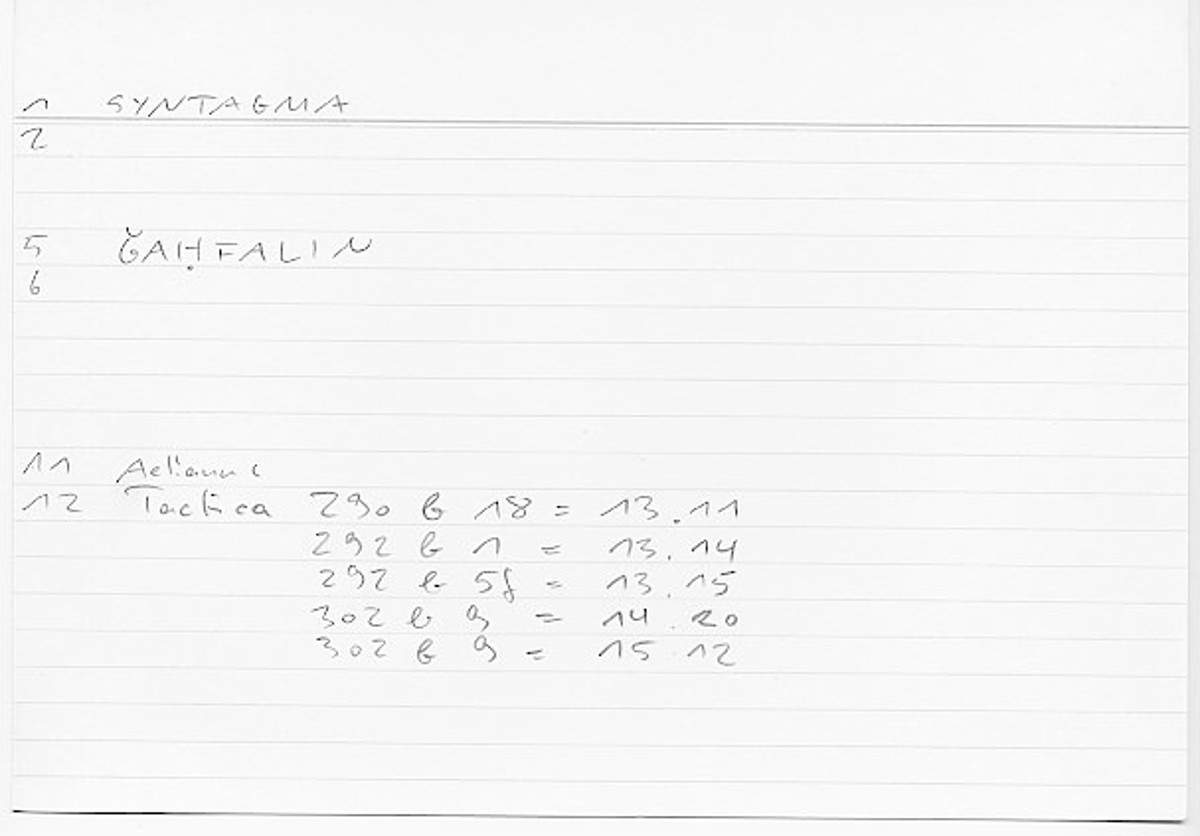 1 SYNTAGMA
2
5 ǦAḤFALIN
6
11 Aelianus
12 Tactica 290 b 18 = 13.11
292 b 1 = 13.14
292 b 5f = 13.15
302 b 9 = 14.20
302 b 9 = 15.12